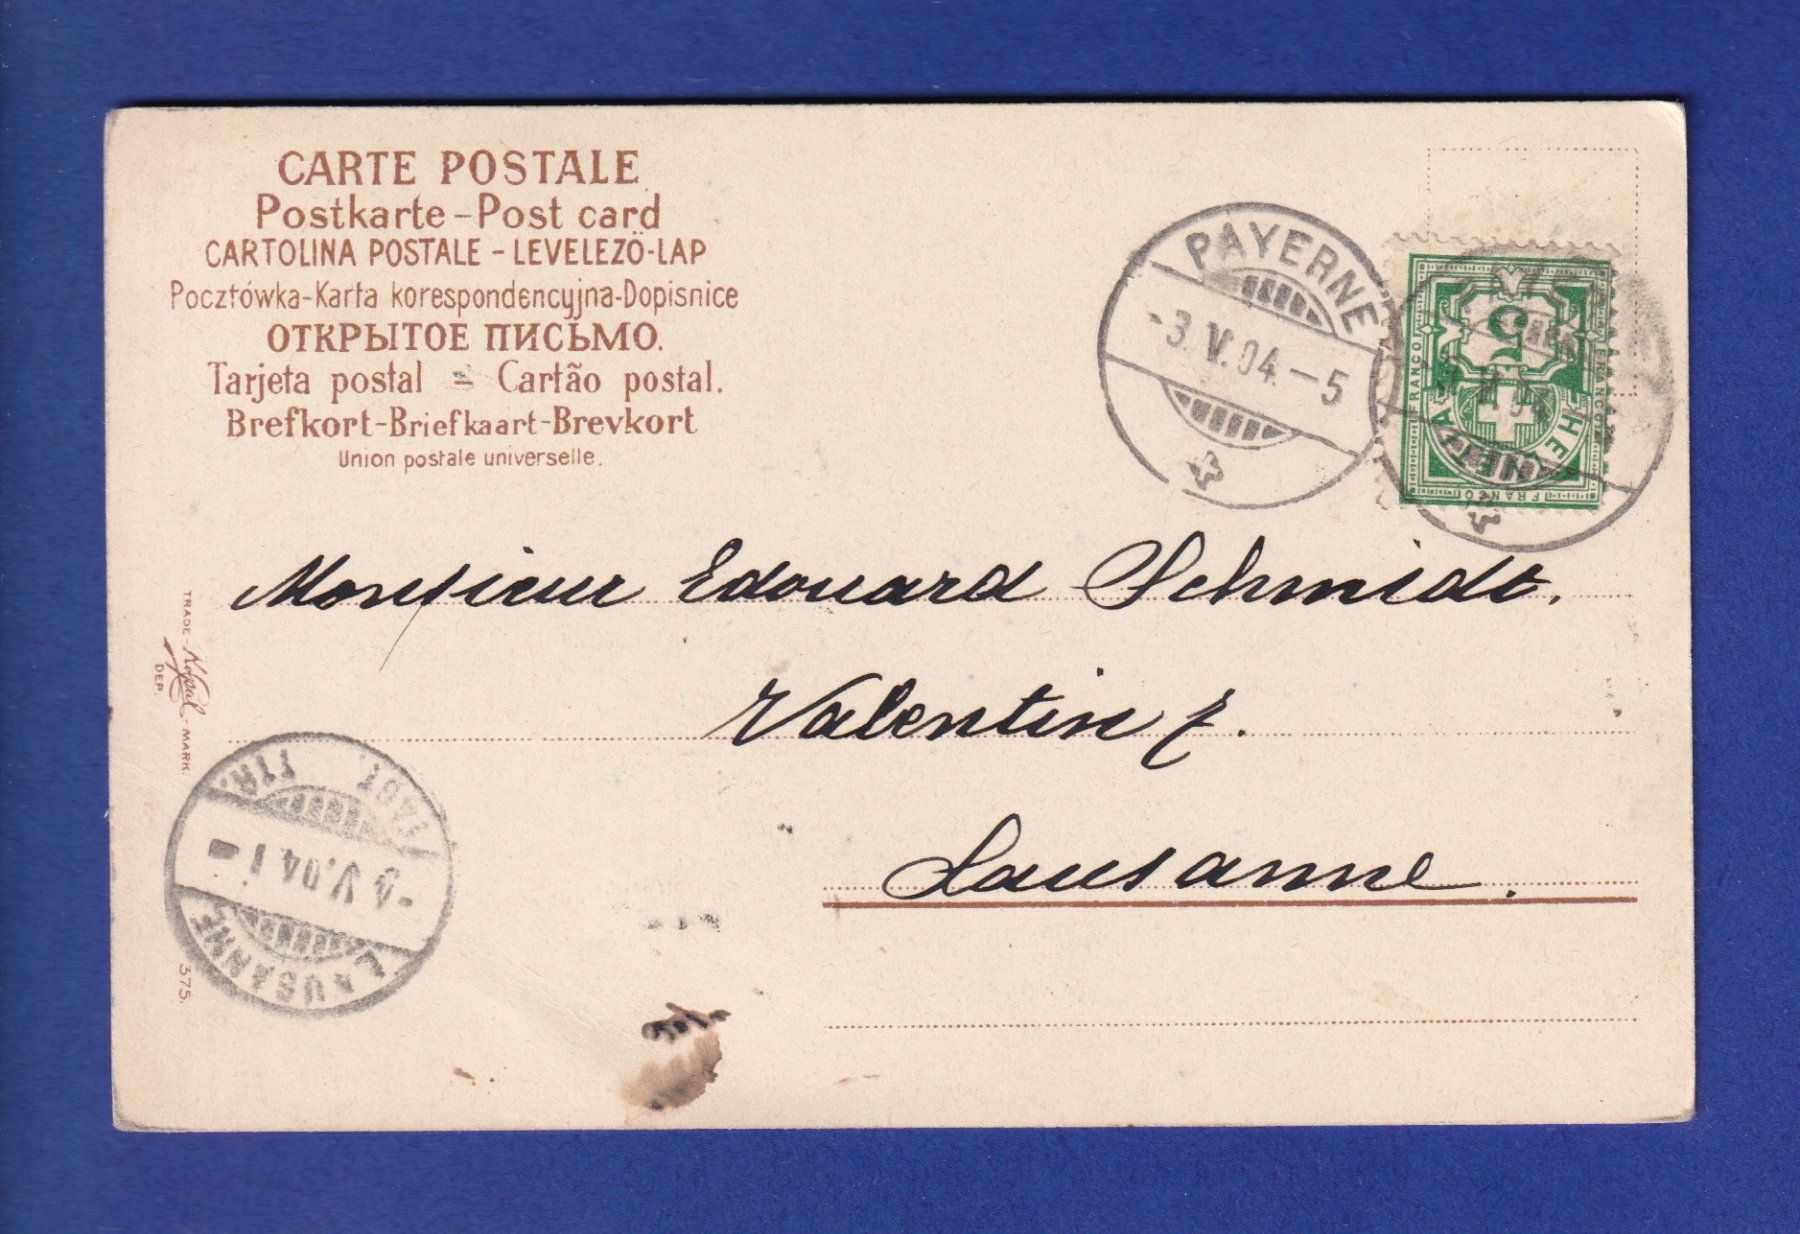 CARTE POSTALE
Postkarte - Post card
CARTOLINA POSTALE - LEVELEZÖ-LAP
Pocztówka-Karta korespondencyjna-Dopisnice
ОТКРЫТОЕ ПИСЬМО.
Tarjeta postal = Cartão postal.
Brefkort-Briefkaart-Brevkort
Union postale universelle.
PAYERNE
-3.V.04.-5
5
FRANCO
FRANCO
FRANCO
HELVETIA
Monsieur Edouard Schmidt.
Valentin
Lausanne.
TRADE - MARK.
DEP.
LAUSANNE
V.04.
375.